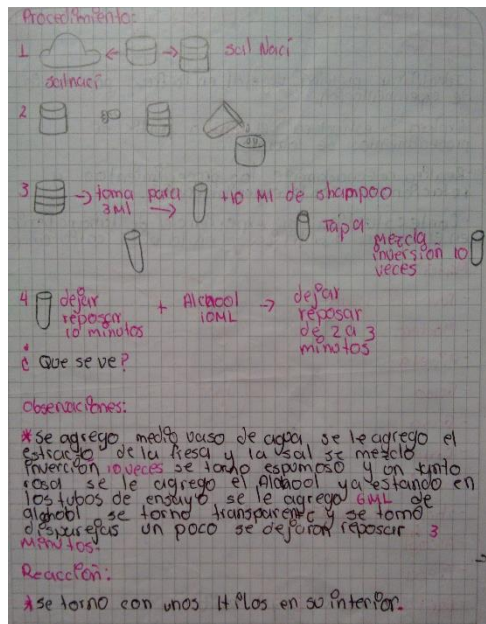 Procedimiento:
1 sal Nacl
salnacl
2
3 → toma para +10 Ml de shampoo
3Ml →
Tapa
mezcla
inversion 10
veces
4 dejar + Alchool → dejar
reposar 10ML reposar
10 minutos de 2 a 3
minutos
¿ Que se ve?
Observaciones:
*se agrego medio vaso de agua, se le agrego el
estracto de la fresa y la sal se mezclo
Inverción 10 veces se torno espumoso y un tinto
rosa se le agrego el Alcohol ya estando en
los tubos de ensayo se le agrego 6ML de
alcohol se torno transparente y se torno
desparejas un poco se dejaron reposar 3
minutos.
Reacción:
*se torno con unos Hilos en su interior.